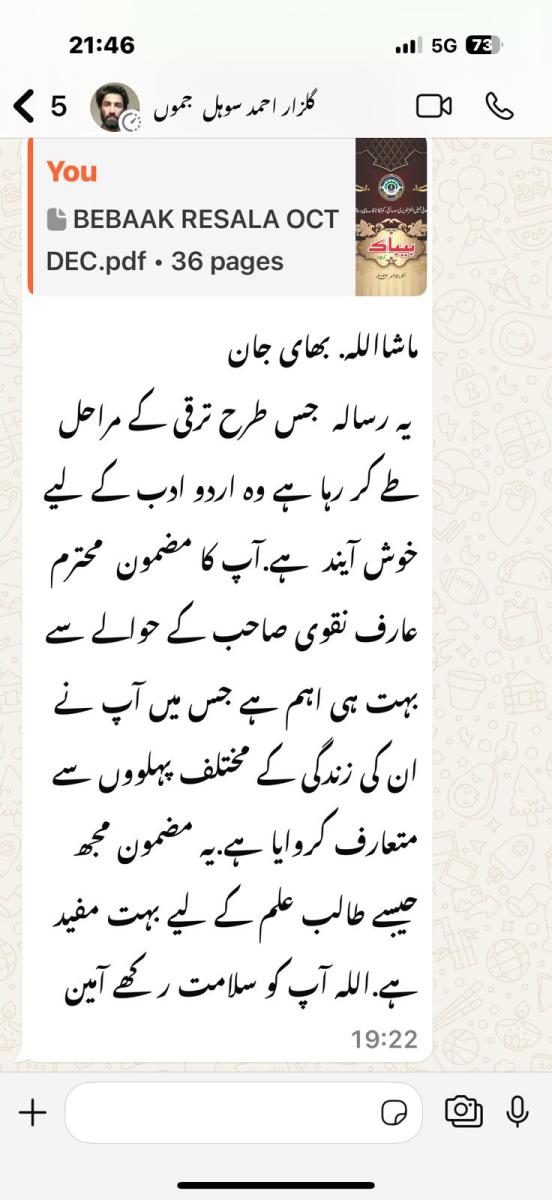 21:46
5G 73
5
گلزار احمد سوہل جموں
You
BEBAAK RESALA OCT
DEC.pdf • 36 pages
بیباک
ماشااللہ. بھای جان
یہ رسالہ جس طرح ترقی کے مراحل
طے کر رہا ہے وہ اردو ادب کے لیے
خوش آیند ہے.آپ کا مضمون محترم
عارف نقوی صاحب کے حوالے سے
بہت ہی اہم ہے جس میں آپ نے
ان کی زندگی کے مختلف پہلووں سے
متعارف کروایا ہے.یہ مضمون مجھ
جیسے طالب علم کے لیے بہت مفید
ہے.اللہ آپ کو سلامت رکھے آمین
19:22